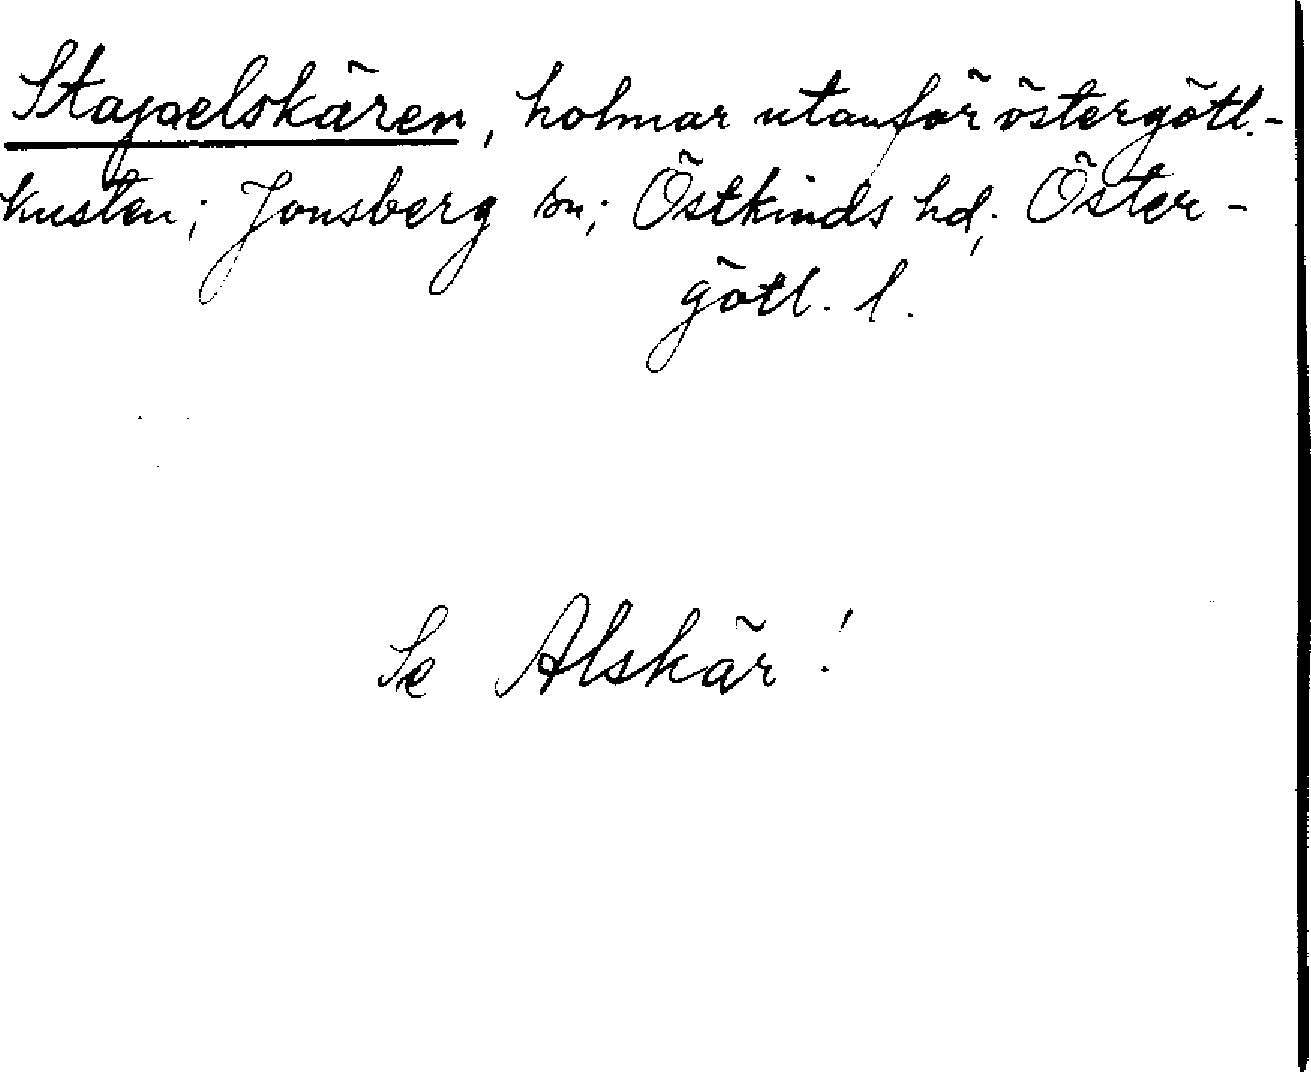 Stapelskären, holmar utanför östergötl.-
kusten; Jonsberg sn; Östkinds hd; Öster-
götl. l.
Se Alskär!